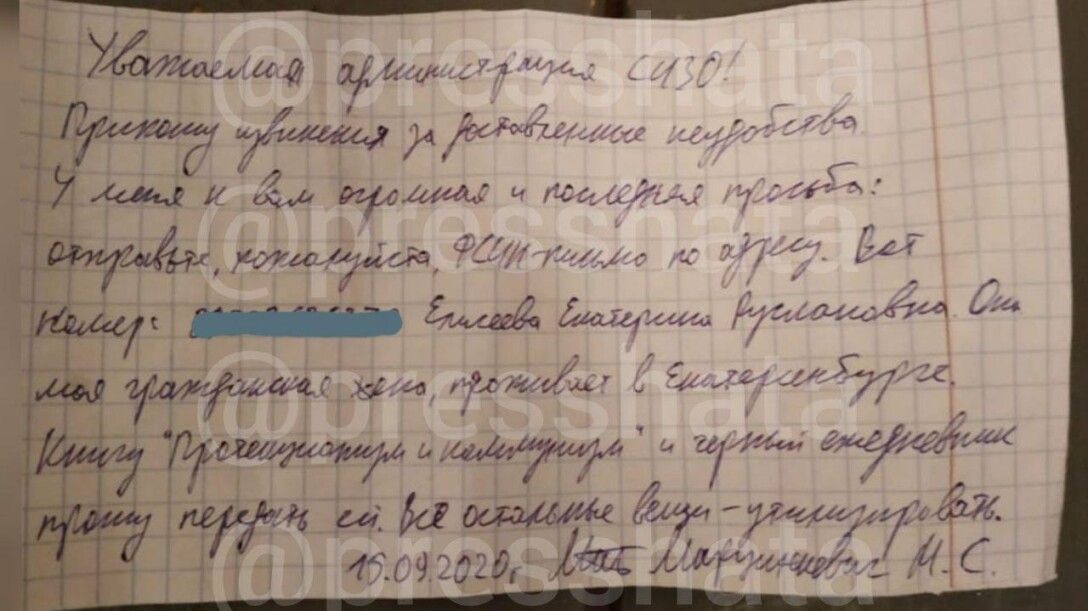 Уважаемая администрация СИЗО!
Приношу извинения за доставленные неудобства.
У меня к вам огромная и последняя просьба:
отправьте, пожалуйста, ФСИН-письмо по адресу. Вот
номер: Елисеева Екатерина Руслановна. Она
моя гражданская жена, проживает в Екатеринбурге.
Книгу "Протекционизм и коммунизм" и черный ежедневник
прошу передать ей. Всё остальные вещи - утилизировать.
15.09.2020г. Марцинкевич М. С.
@presshata
@presshata
@presshata
@presshata